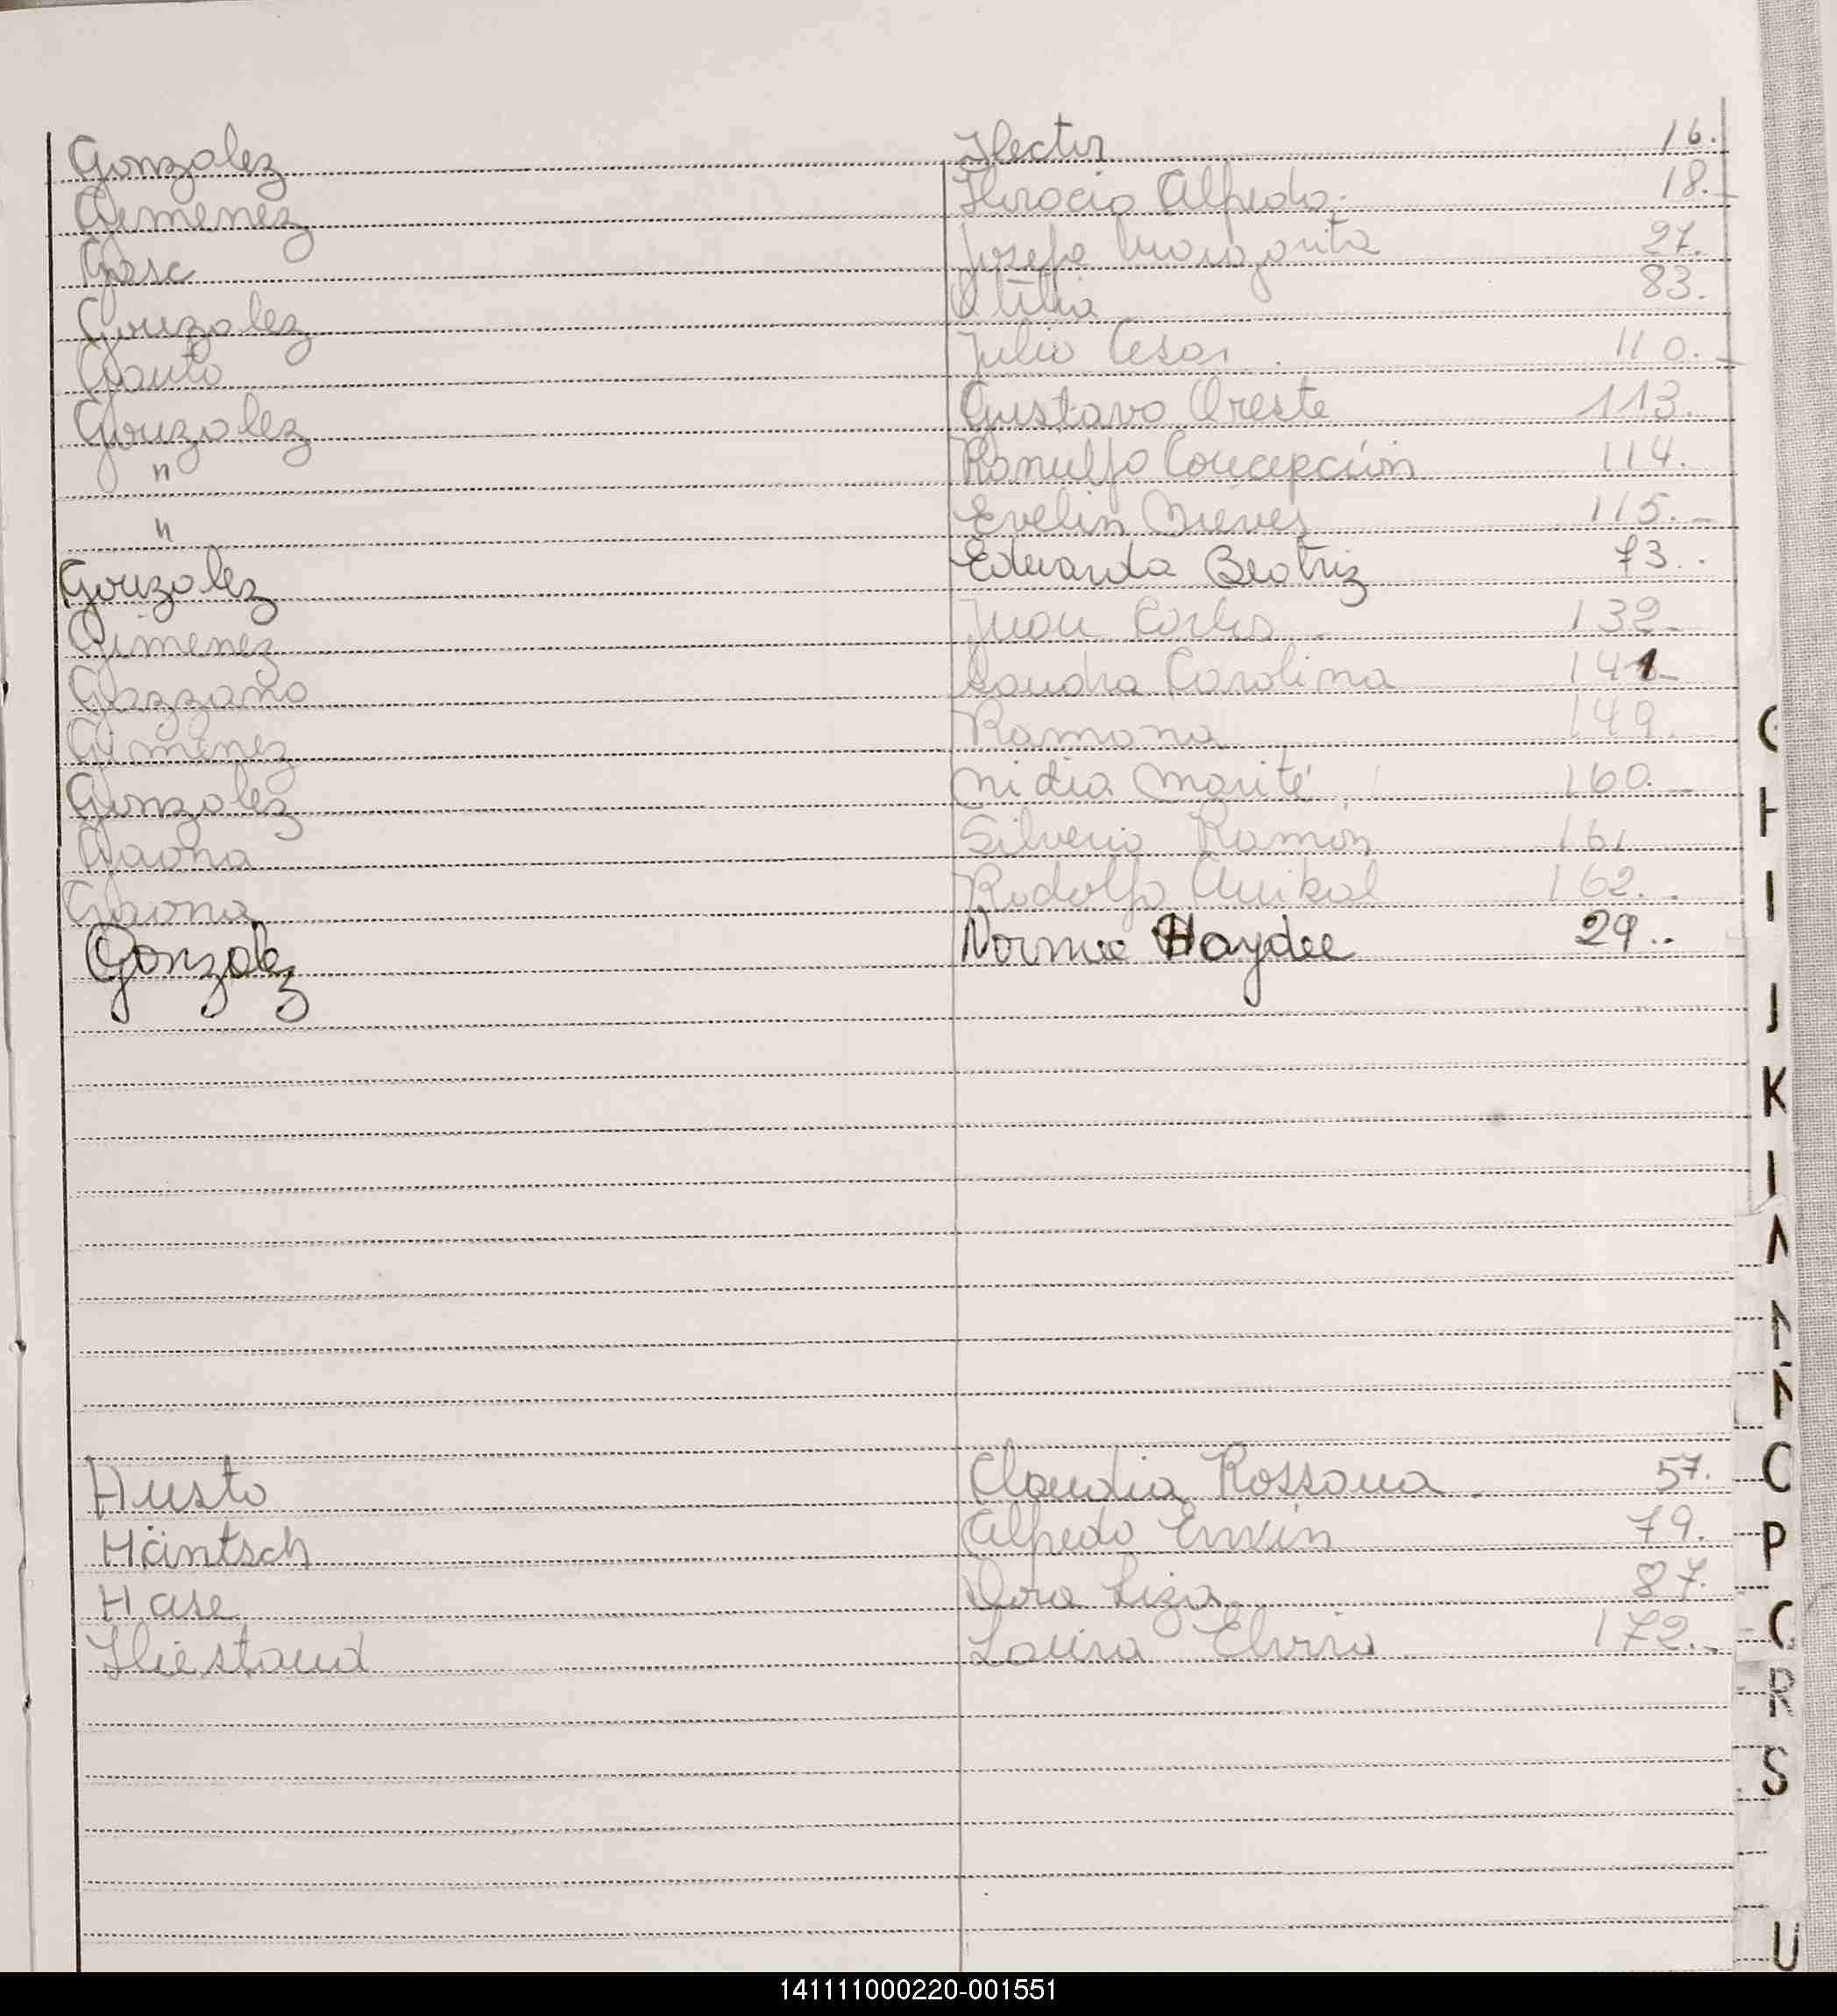 Gonzalez Hector 16.
Gimenez Horacio Alfredo. 18.-
Gasc Josefa Margarita 27.
Gonzalez Otilia 83.
Gauto Julio Cesar. 110.-
Gonzalez Gustavo Oreste 113.
" Ranulfo Concepción 114.
" Evelin Nieves 115.-
Gonzalez Eduarda Beatriz 73..
Gimenez Juan Carlos - 132-
Gazzano Sandra Carolina 141-
Gimenez Ramona 149.
Gonzalez Nidia Marité 160.-
Gaona Silverio Ramón 161
Gaona Rodolfo Anibal 162..
Gonzalez Norma Haydee 29..
Husto Claudia Rossana - 57.
Häntsch Alfredo Erwin 79.
Hase Dora Liza 87.
Hiestand Laura Elvira 172.-
I
J
K
P
R
S
U
141111000220-001551